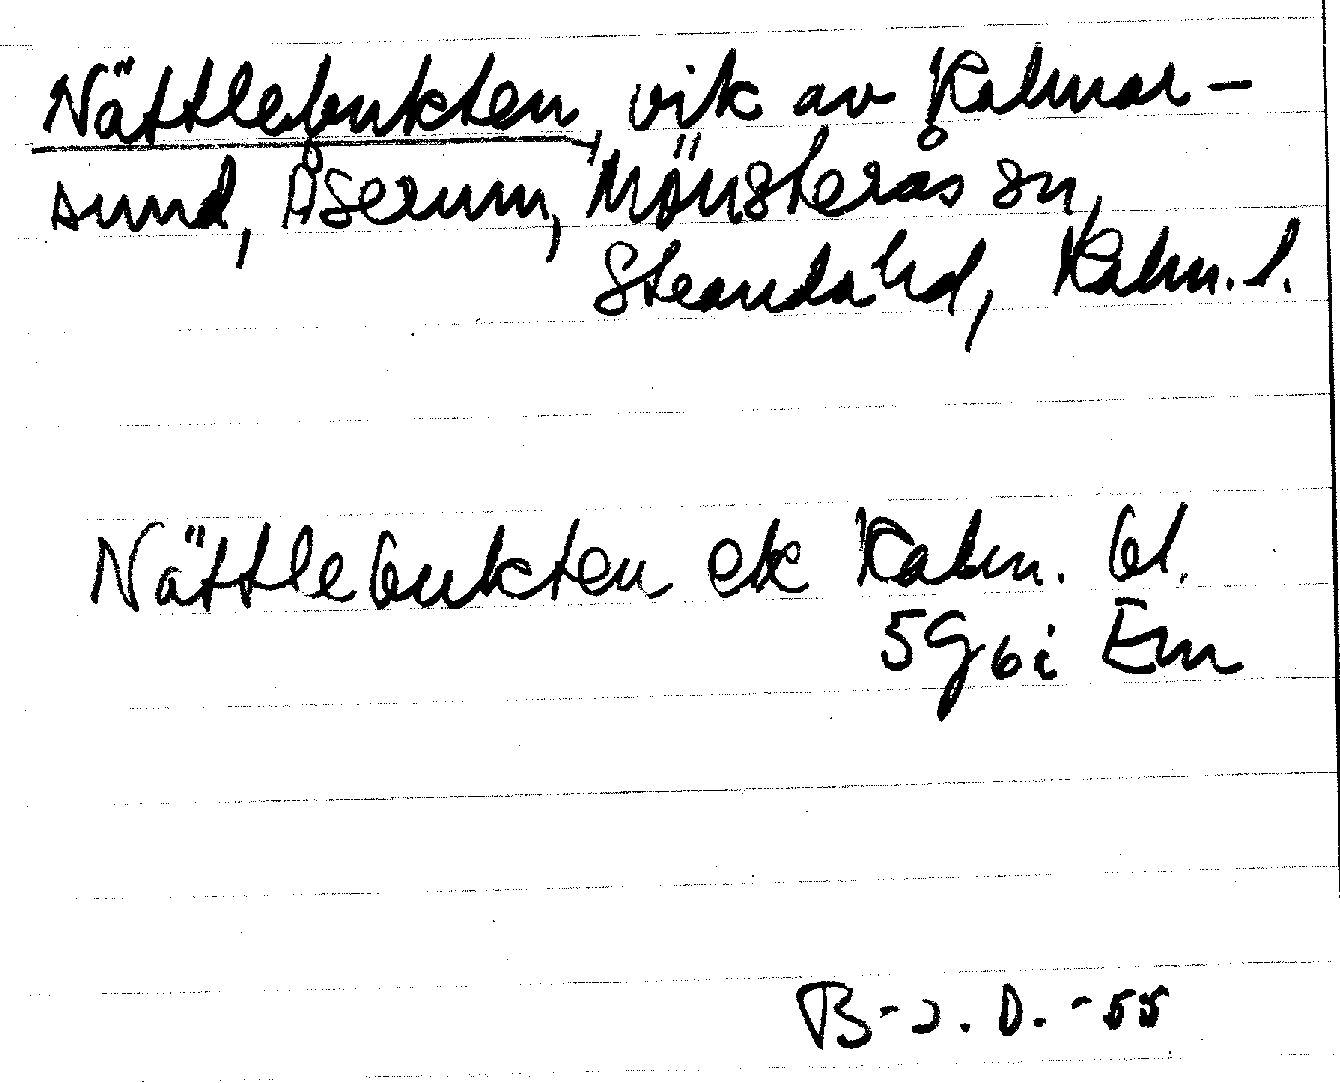 Nättlebukten, vik av Kalmar-
sund, Åserum, Mönsterås sn,
Stranda hd, Kalm. l.
Nättlebukten ek Kalm. bl.
5G6i Em
B-J. D. -55